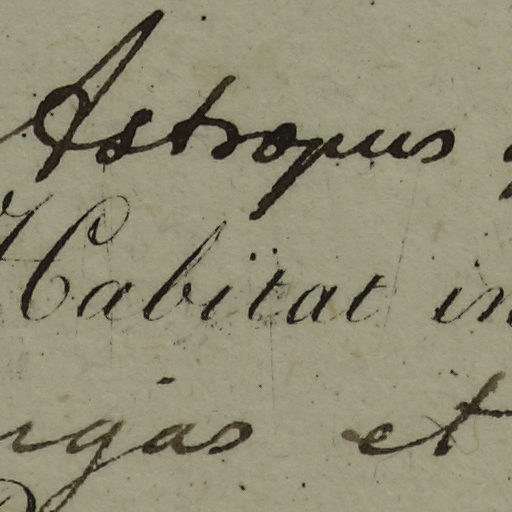 Astropus
Habitat in
et